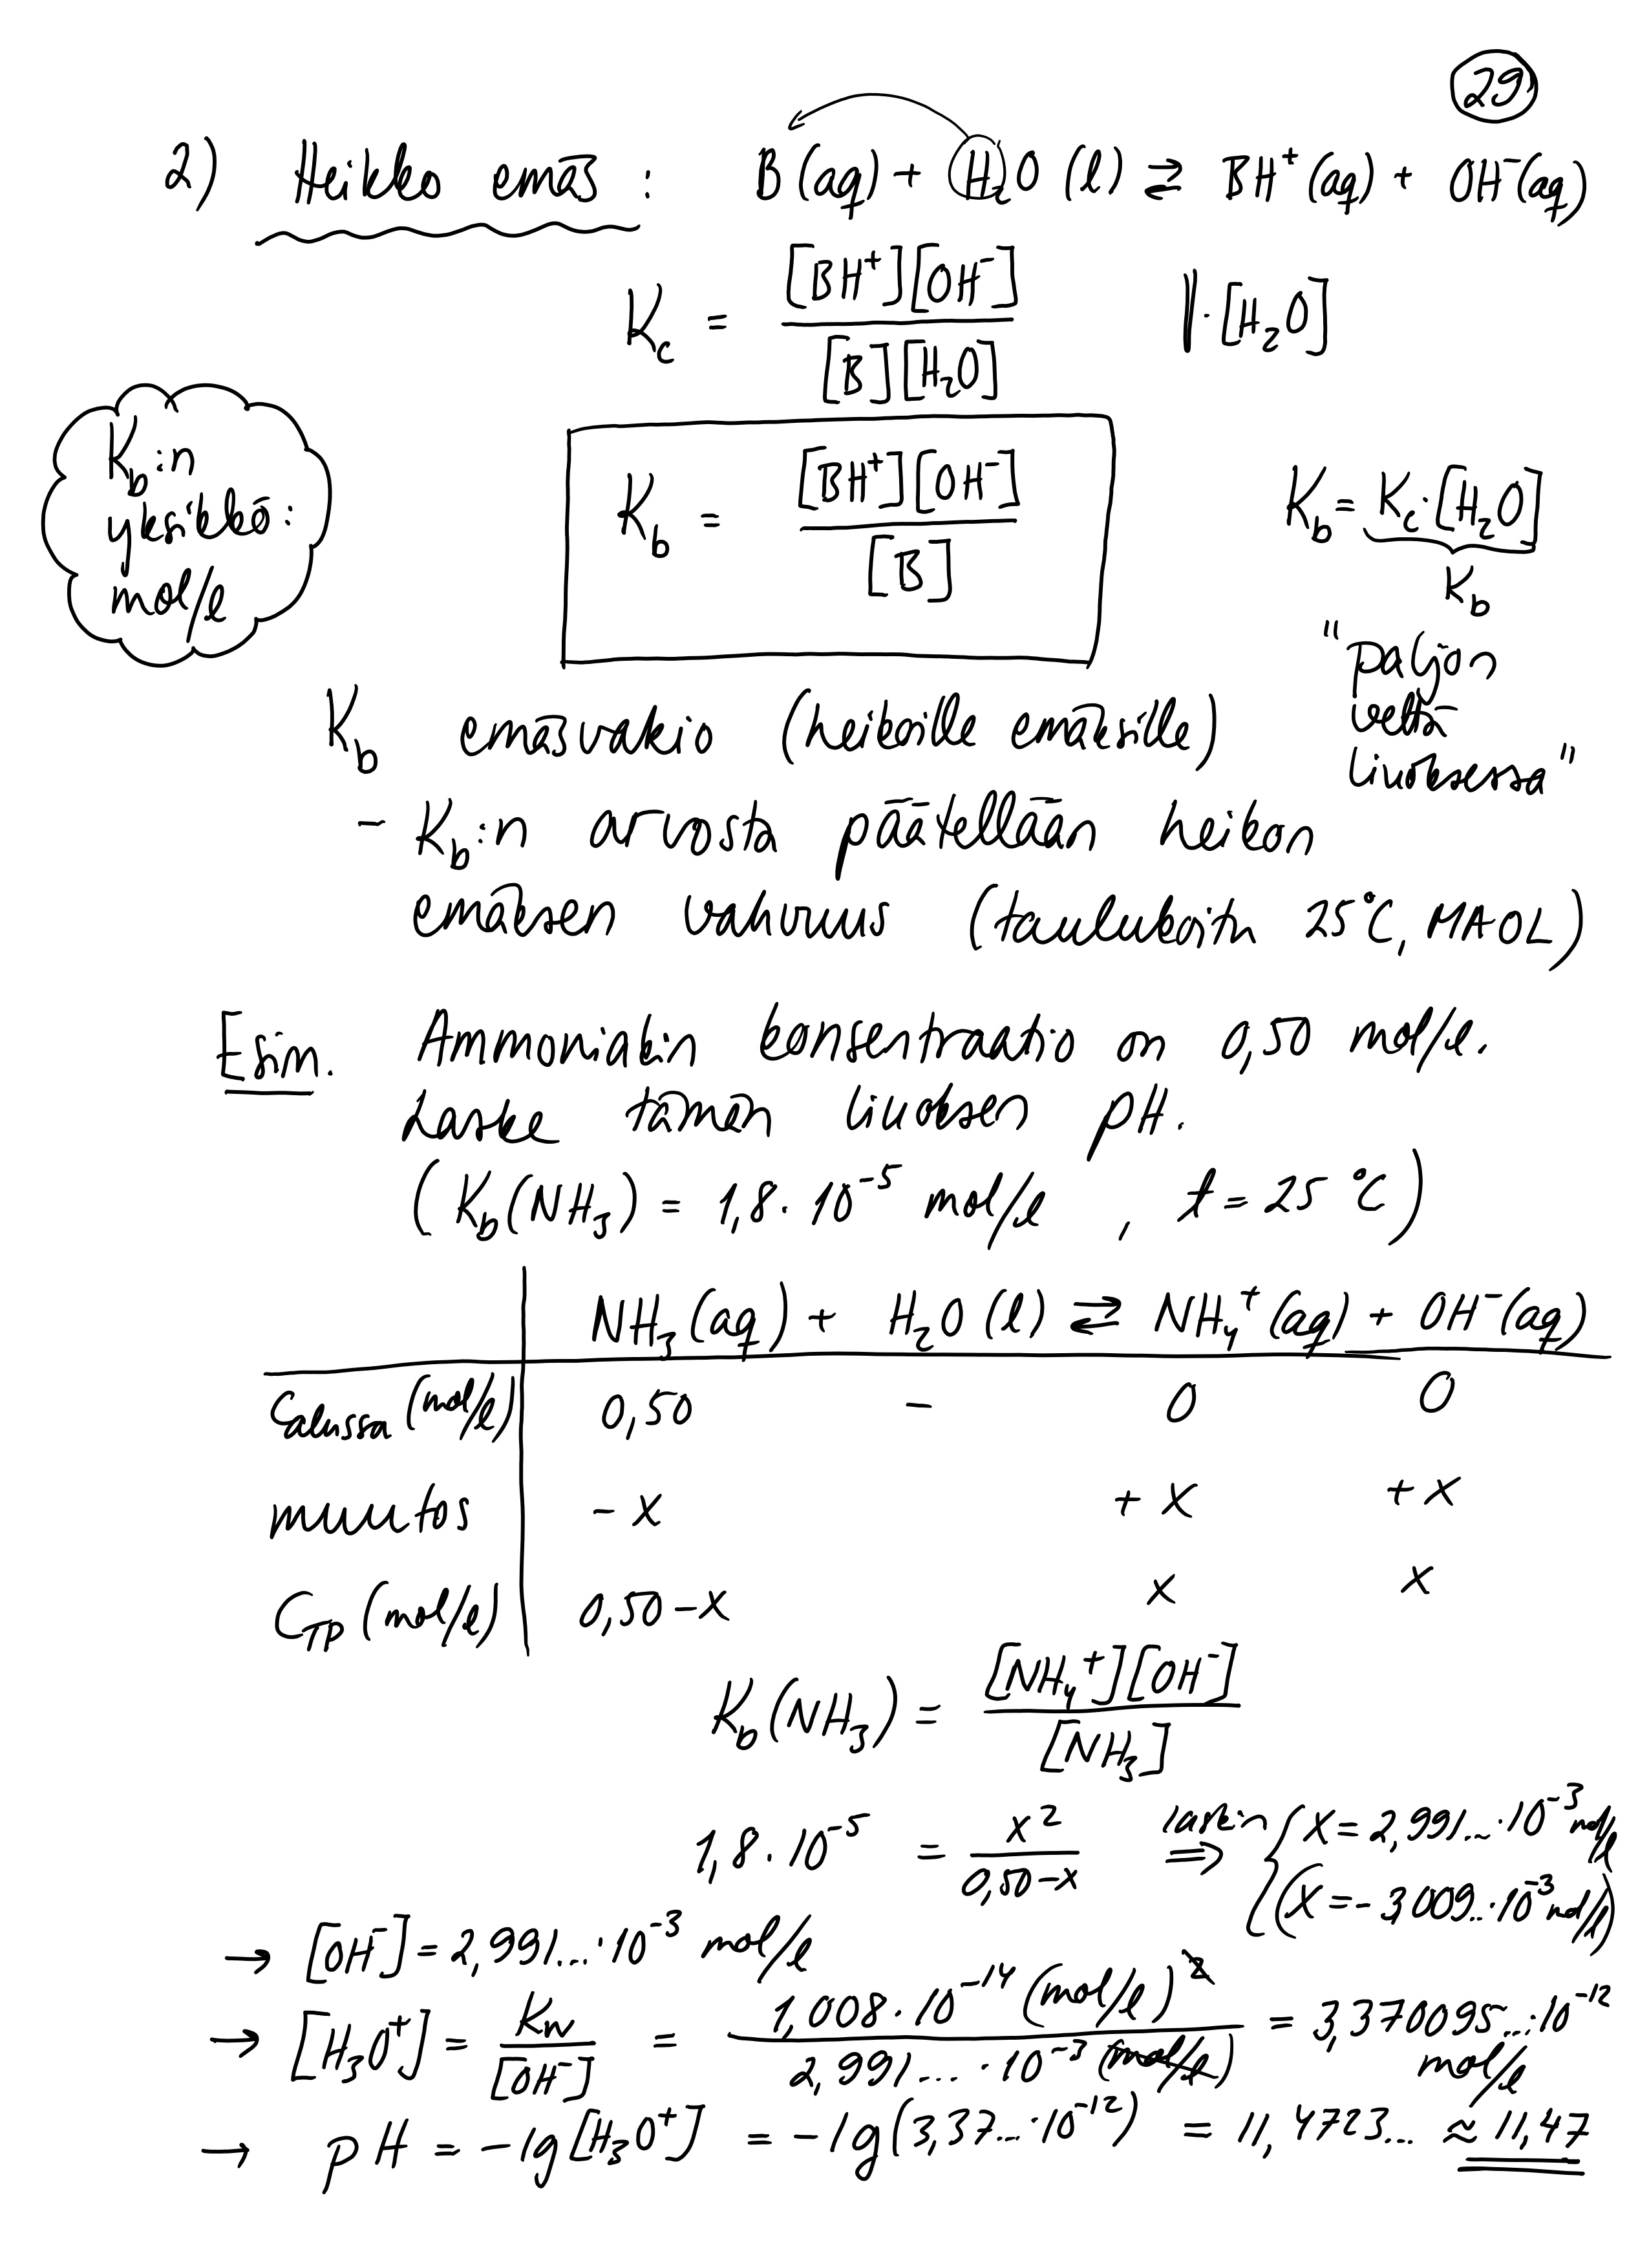 29
2) Heikko emäs : B(aq) + H₂O(l) ⇄ BH⁺(aq) + OH⁻(aq)
K_c = [BH⁺][OH⁻] / [B][H₂O] ‖·[H₂O]
K_b:n
yksikkö:
mol/l
K_b = [BH⁺][OH⁻] / [B]
K_b = K_c·[H₂O]
K_b
"paljon
vettä
liuoksessa"
K_b emäsvakio (heikoille emäksille)
- K_b:n arvosta päätellään heikon
emäksen vahvuus (taulukoitu 25°C, MAOL)
Esim. Ammoniakin konsentraatio on 0,50 mol/l.
Laske tämän liuoksen pH.
(K_b(NH₃) = 1,8·10⁻⁵ mol/l , t = 25 °C)
NH₃(aq) + H₂O(l) ⇄ NH₄⁺(aq) + OH⁻(aq)
C_alussa (mol/l) 0,50 - 0 0
muutos -x +x +x
C_TP (mol/l) 0,50-x x x
K_b(NH₃) = [NH₄⁺][OH⁻] / [NH₃]
1,8·10⁻⁵ = x² / 0,50-x laskin ⇒ { x = 2,991...·10⁻³ mol/l
(x = -3,009...·10⁻³ mol/l)
→ [OH⁻] = 2,991...·10⁻³ mol/l
→ [H₃O⁺] = K_w / [OH⁻] = 1,008·10⁻¹⁴ (mol/l)² / 2,991...·10⁻³ (mol/l) = 3,370095...·10⁻¹² mol/l
→ pH = -lg[H₃O⁺] = -lg(3,37...·10⁻¹²) = 11,4723... ≈ 11,47